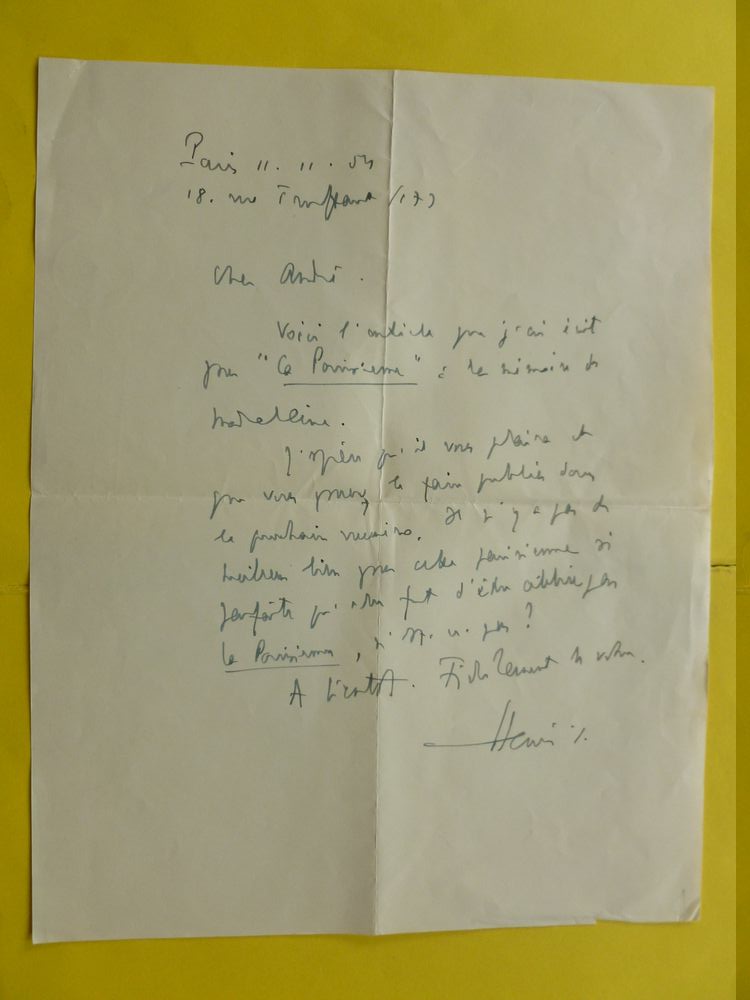 Paris 11. 11. 54
18. rue Truffaut (17)
Cher André.
Voici l'article que j'ai écrit
pour "La Parisienne" à la mémoire de
Madeleine.
J'espère qu'il vous plaira et
que vous pourrez le faire publier dans
le prochain numéro. Il n'y a pas de
meilleur lieu pour cette parisienne si
parfaite qu'elle fut d'être célébrée par
La Parisienne, n'est-ce pas ?
A bientôt. Fidèlement le vôtre.
Henri